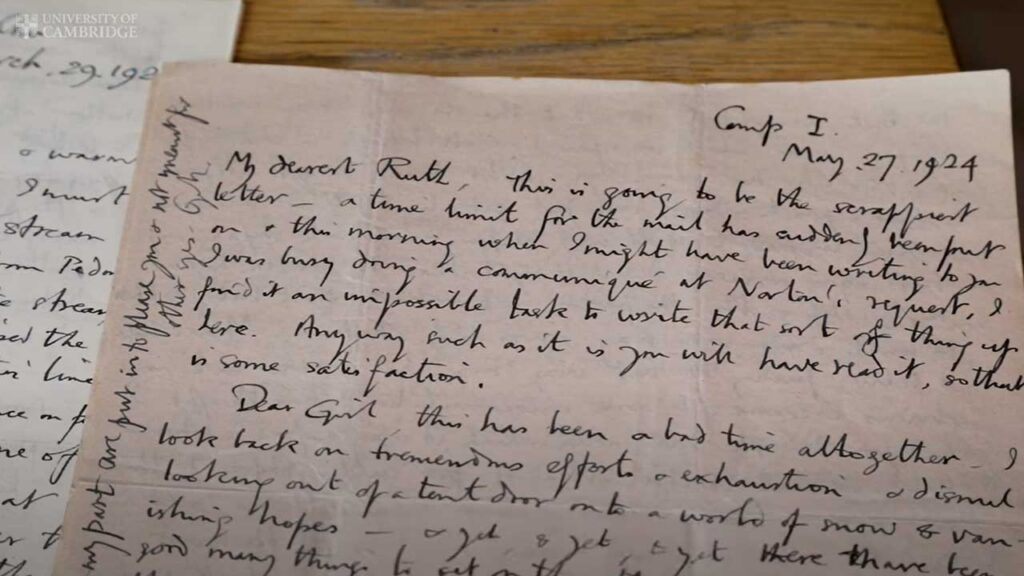 UNIVERSITY OF
CAMBRIDGE
rch, 29. 192
o warm
I must
stream
om Pedo
e stream
sed the
line
ce on
me of
at
Camp I.
May. 27. 1924
My dearest Ruth, This is going to be the scrappiest
letter – a time limit for the mail has suddenly been put
on & this morning when I might have been writing to you
I was busy doing a communiqué at Norton's request, I
find it an impossible task to write that sort of thing up
here. Anyway such as it is you will have read it, so that
is some satisfaction.
Dear Girl this has been a bad time altogether – I
look back on tremendous efforts & exhaustion & dismal
looking out of a tent door onto a world of snow & van-
ishing hopes – & yet, & yet, & yet there have been
good many things to set on the
my part are put in to please you & not meant for
other eyes. G.L.M.